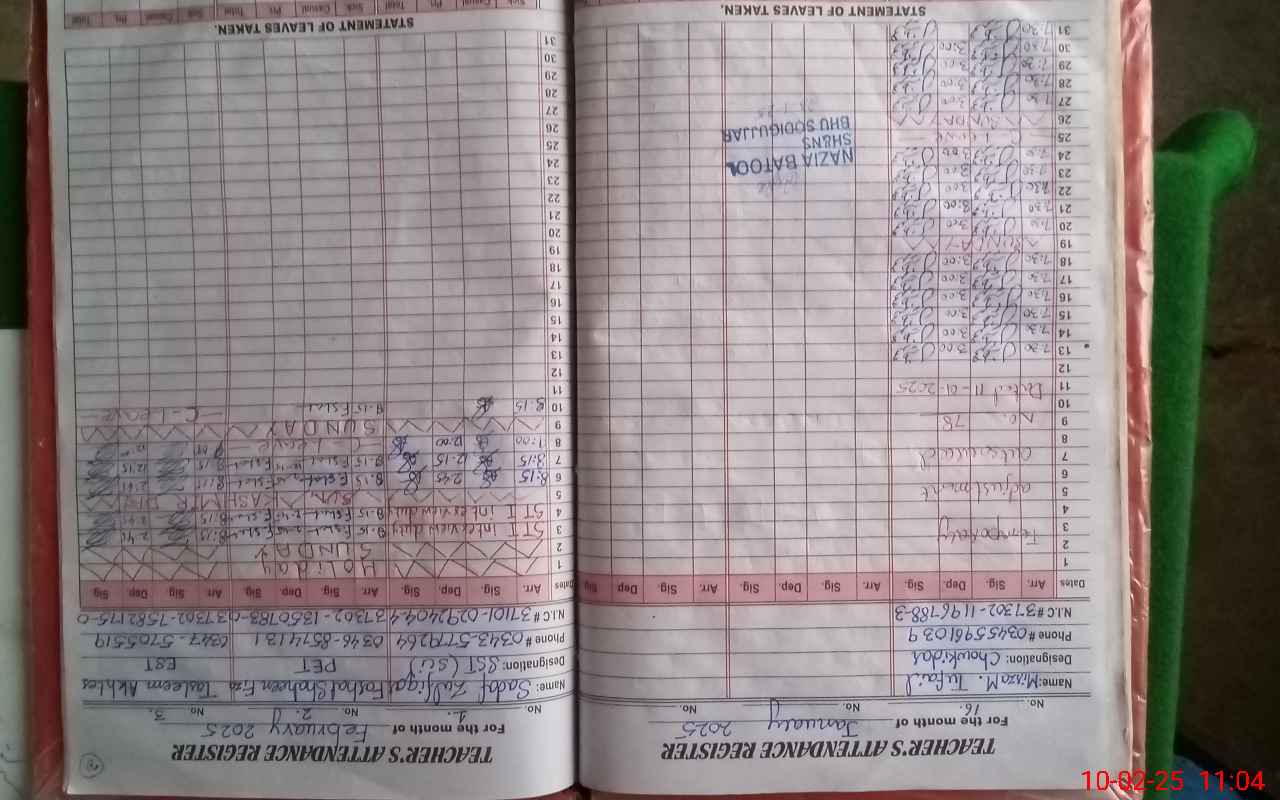 TEACHER'S ATTENDANCE REGISTER
For the month of January 2025
No. 16.
No.
No.
Name: Mirza M. Tufail
Designation: Chowkidar
Phone # 03455961039
N.I.C # 37302-1196788-3
Dates Arr. Sig. Dep. Sig. Arr. Sig. Dep. Sig. Arr. Sig. Dep Sig
1
2
3 Temporary
4
5 adjustment
6
7
8
9 No. 78
10
11 Dated 11-01-2025
12
13 7:30 3:00
14 7:30 3:00
15 7:30 3:00
16 7:30 3:00
17 7:30 3:00
18 7:30 3:00
19 SUNDAY
20 7:30 3:00
21 7:30 3:00
22 7:30 3:00
23 7:30 3:00
24 7:30 3:00
25 C-Leave
26 SUNDAY
27 7:30 3:00
28 7:30 3:00
29 7:30 3:00
30 7:30 3:00
31 7:30
NAZIA BATOOL
SH&NS
BHU SODIGUJJAR
STATEMENT OF LEAVES TAKEN.
TEACHER'S ATTENDANCE REGISTER
For the month of February 2025
No. 1.
No. 2.
No. 3.
Name: Sadaf Zulfiqar Farhat Shaheen Tasleem Akhter
Designation: SST (Sci) PET EST
Phone # 0343-5779264 0346-8574131 0347-5705519
N.I.C # 37101-0292404-4 37302-1350783-0 37302-7582175-0
Dates Arr. Sig. Dep. Sig. Arr. Sig. Dep. Sig. Arr. Sig. Dep Sig
1 Holiday
2 SUNDAY
3 STI interview duty 8:15 2:40
4 STI interview duty 8:15
5 KASHMIR DAY
6 8:15 2:45 8:15
7 8:15 12:15 8:15 12:15
8 1:00 12:00 C-Leave
9 SUNDAY
10 8:15 8:15 C-Leave
11
12
13
14
15
16
17
18
19
20
21
22
23
24
25
26
27
28
29
30
31
STATEMENT OF LEAVES TAKEN.
Sick Casual Pri Total Sick Casual Pri Total Sick Casual Pri Total
10-02-25 11:04